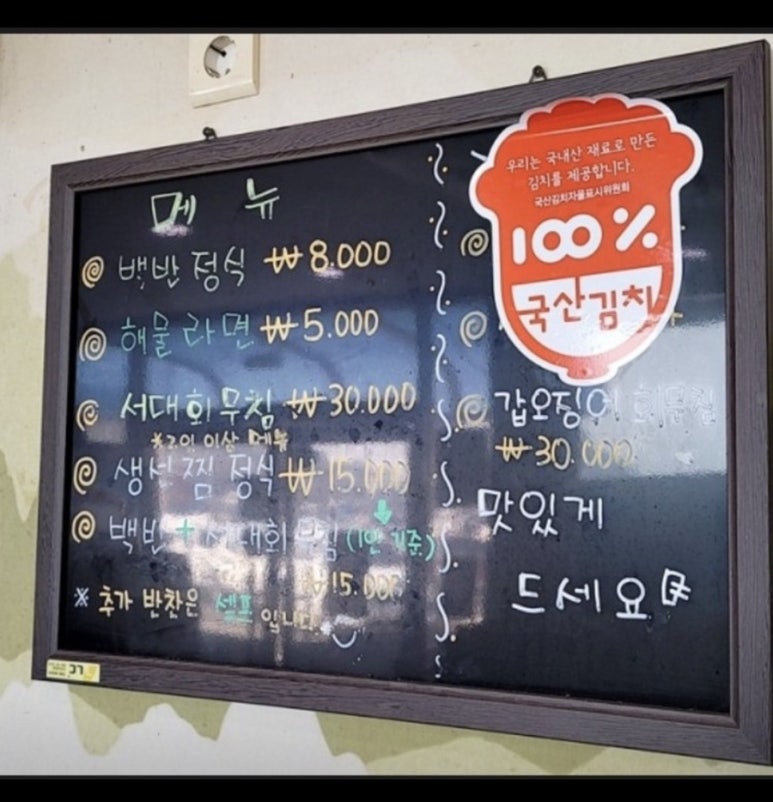 메뉴
백반정식 ₩8.000
해물라면 ₩5.000
서대회무침 ₩30.000
※2인 이상 메뉴
생선찜 정식 ₩15.000
백반+서대회무침 (1인 기준)
₩15.000
※ 추가 반찬은 셀프입니다.
우리는 국내산 재료로 만든
김치를 제공합니다.
국산김치자율표시위원회
100%
국산김치
갑오징어 회무침
₩30.000
맛있게
드세요